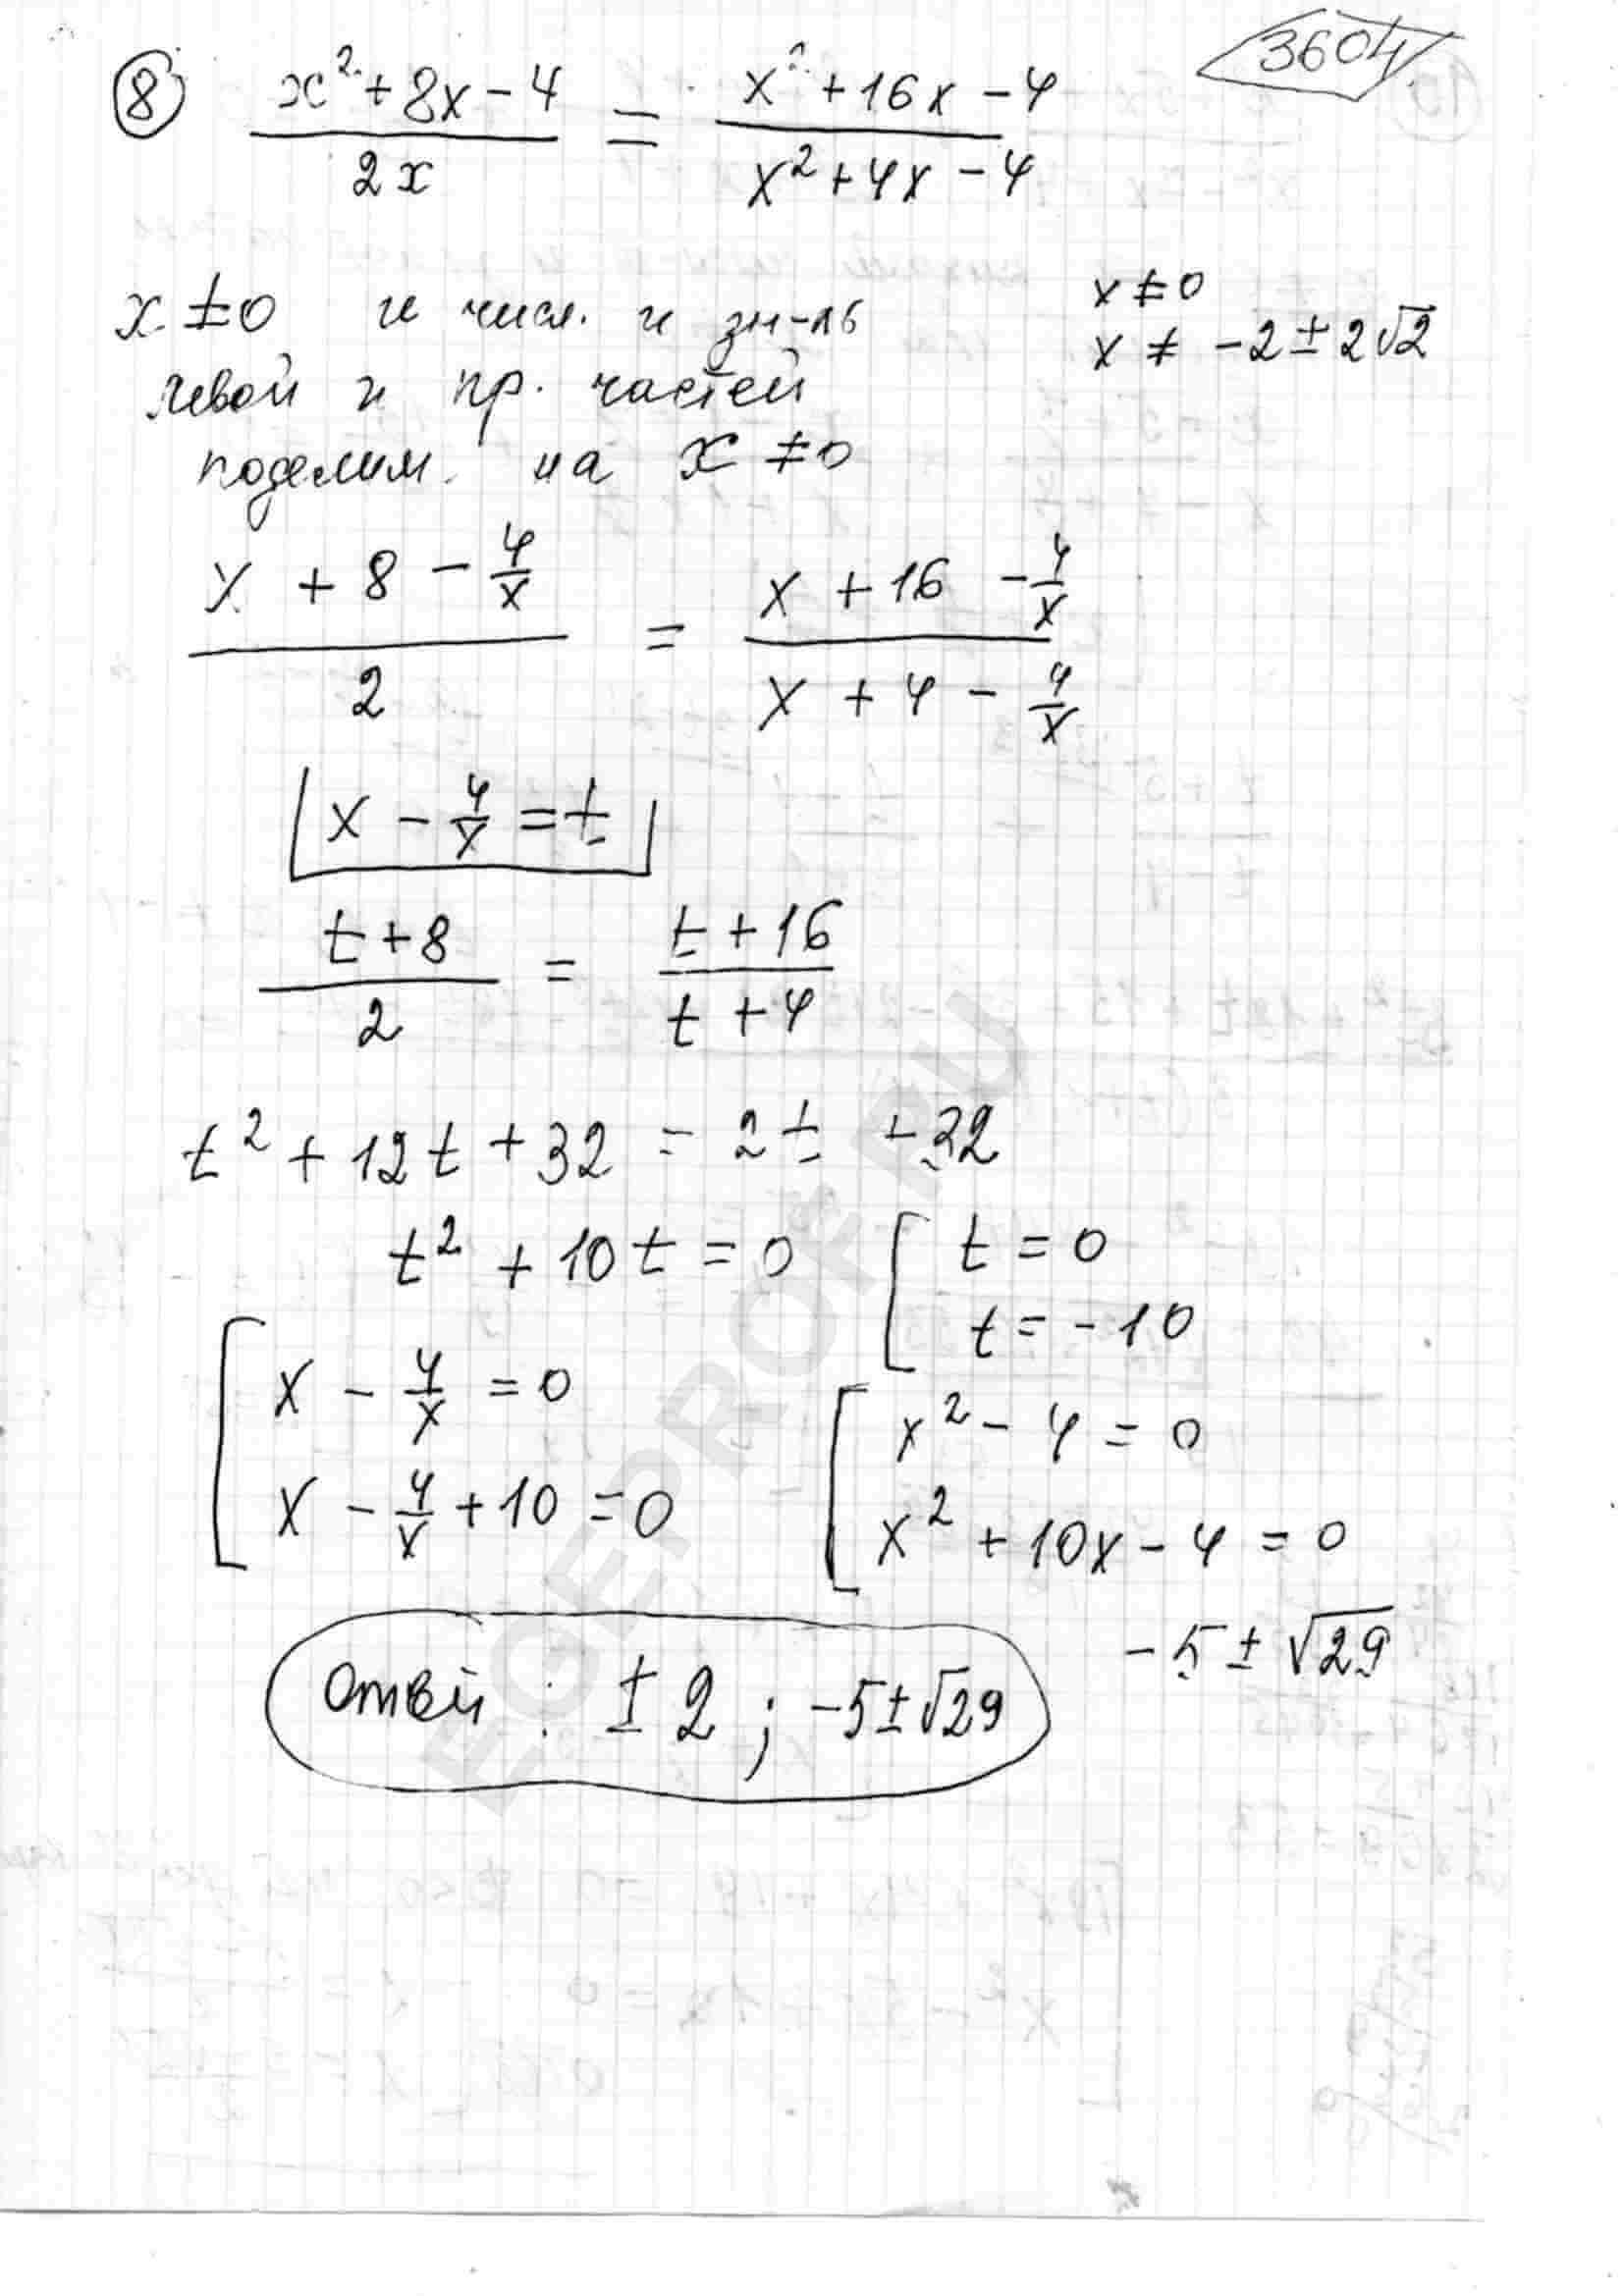 3604
⑧ (x² + 8x - 4)/(2x) = (x² + 16x - 4)/(x² + 4x - 4)
x ≠ 0 и числ. и зн-ль
x ≠ 0
левой и пр. частей
x ≠ -2 ± 2√2
поделим на x ≠ 0
(x + 8 - 4/x)/2 = (x + 16 - 4/x)/(x + 4 - 4/x)
x - 4/x = t
(t + 8)/2 = (t + 16)/(t + 4)
t² + 12t + 32 = 2t + 32
t² + 10t = 0
[ t = 0
t = -10
[ x - 4/x = 0
x - 4/x + 10 = 0
[ x² - 4 = 0
x² + 10x - 4 = 0
-5 ± √29
Ответ : ± 2 ; -5 ± √29
EGEPROF.RU